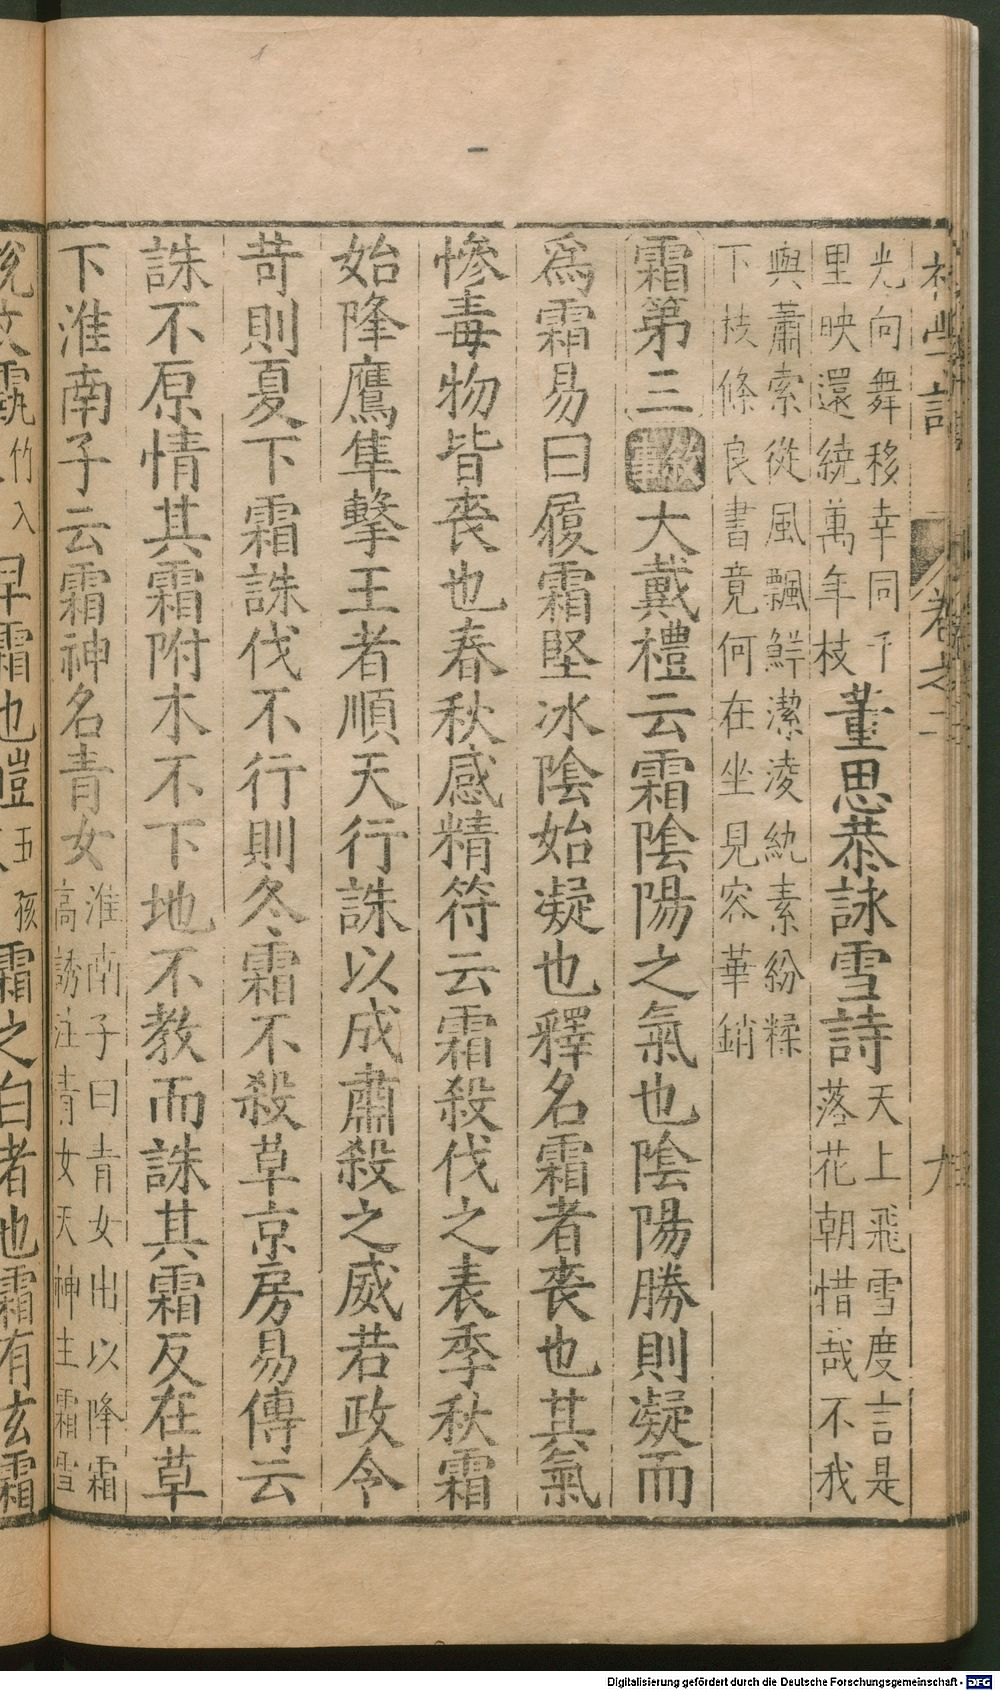 初學記 卷之二 九
光向舞移幸同千里映還繞萬年枝董思恭詠雪詩天上飛雪度言是落花朝惜哉不我
與蕭索從風飄鮮潔凌紈素紛糅下枝條良書竟何在坐見容華銷
霜第三敘事大戴禮云霜陰陽之氣也陰陽勝則凝而
爲霜易曰履霜堅冰陰始凝也釋名霜者喪也其氣
慘毒物皆喪也春秋感精符云霜殺伐之表季秋霜
始降鷹隼擊王者順天行誅以成肅殺之威若政令
苛則夏下霜誅伐不行則冬霜不殺草京房易傳云
誅不原情其霜附木不下地不教而誅其霜反在草
下淮南子云霜神名青女淮南子曰青女出以降霜高誘注青女天神主霜雪
說文霜竹入早霜也皚五孩霜之白者也霜有玄霜
Digitalisierung gefördert durch die Deutsche Forschungsgemeinschaft - DFG